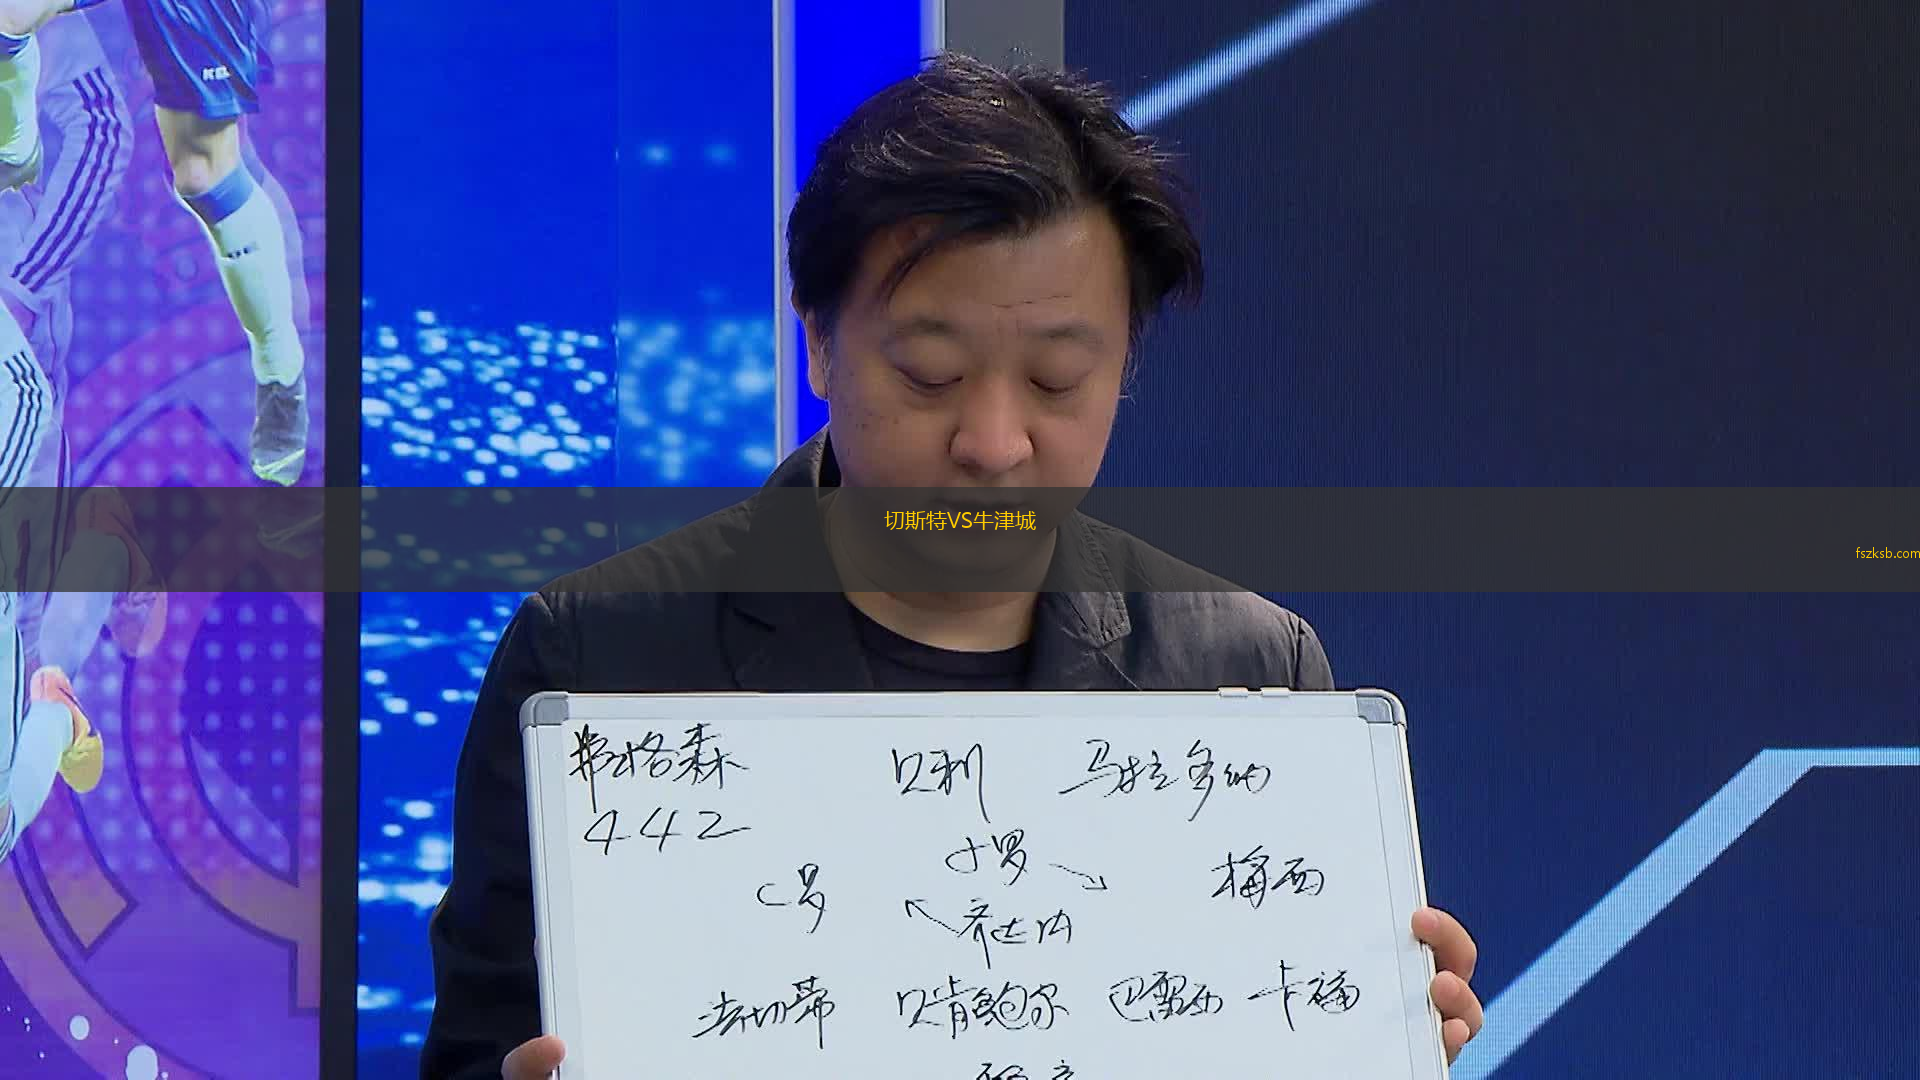 KEL
切斯特VS牛津城
fszksb.com
弗格森 贝利 马拉多纳
442
小罗
C罗 梅西
齐达内
法切蒂 贝肯鲍尔 巴雷西 卡福